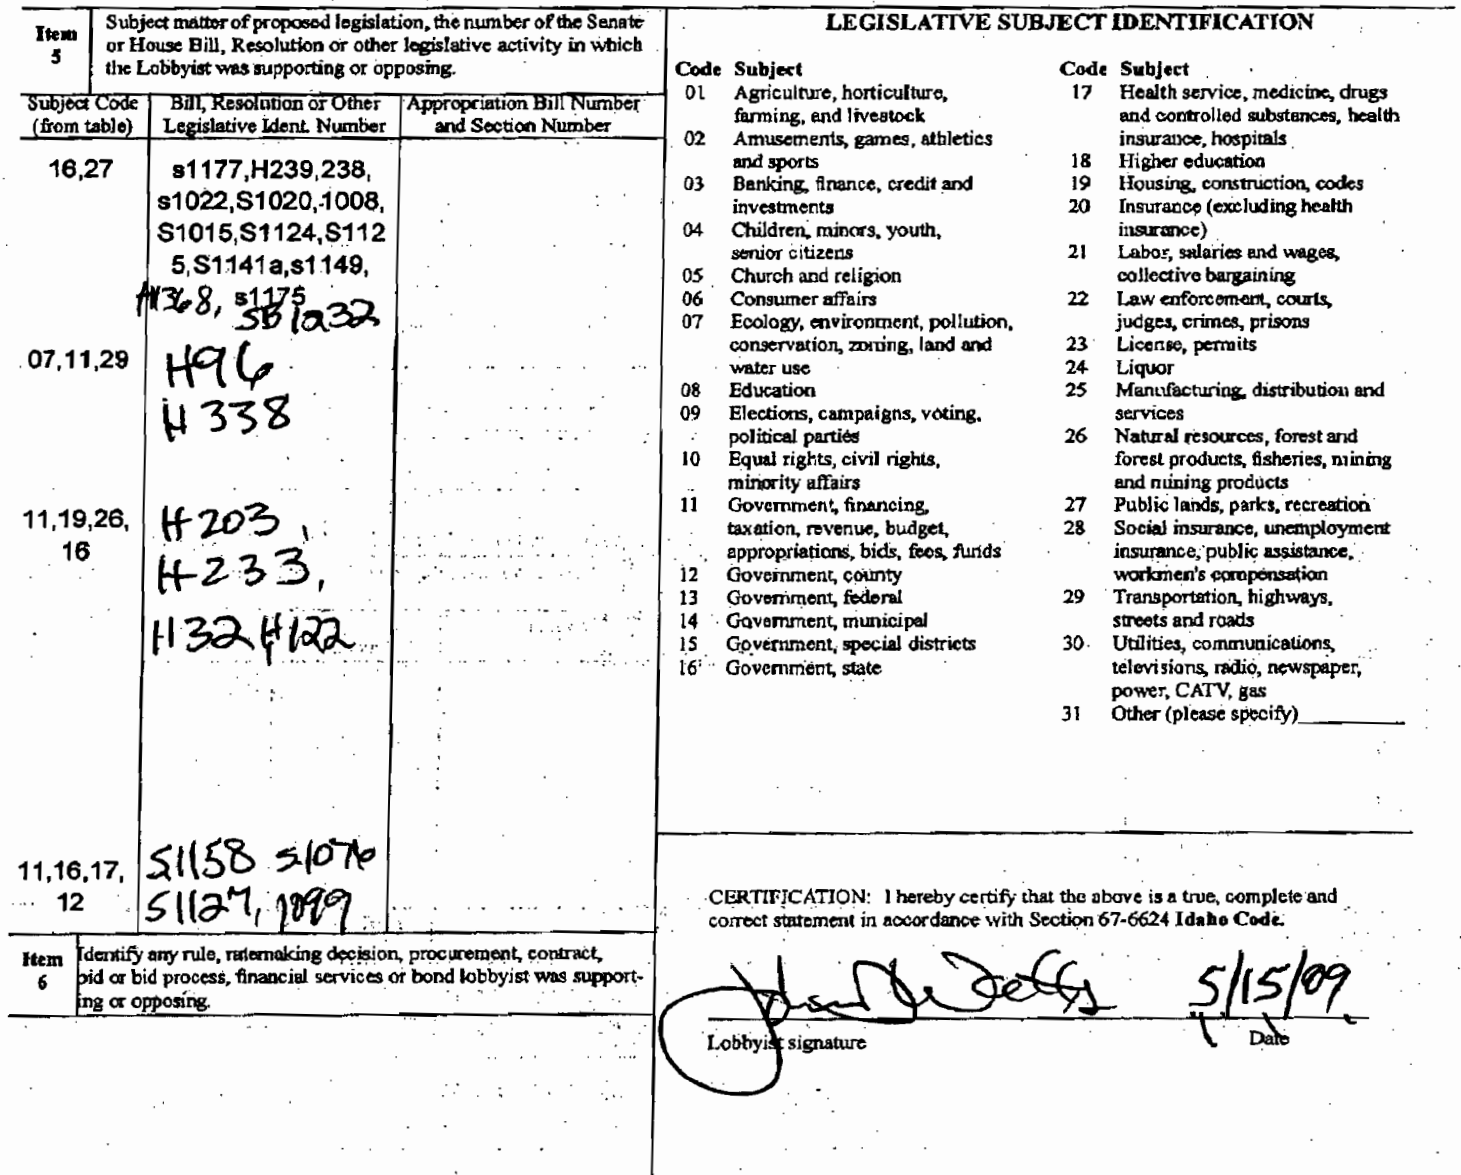 Item
5
Subject matter of proposed legislation, the number of the Senate
or House Bill, Resolution or other legislative activity in which
the Lobbyist was supporting or opposing.
Subject Code
(from table)
Bill, Resolution or Other
Legislative Ident. Number
Appropriation Bill Number
and Section Number
16,27
s1177,H239,238,
s1022,S1020,1008,
S1015,S1124,S112
5,S1141a,s1149,
H368, s1175
SB1232
07,11,29
H96
H338
11,19,26,
16
H203,
H233,
H32 H122
11,16,17,
12
S1158 S1076
S1127, 1099
Item
6
Identify any rule, ratemaking decision, procurement, contract,
bid or bid process, financial services or bond lobbyist was support-
ing or opposing.
LEGISLATIVE SUBJECT IDENTIFICATION
Code Subject
01 Agriculture, horticulture,
farming, and livestock
02 Amusements, games, athletics
and sports
03 Banking, finance, credit and
investments
04 Children, minors, youth,
senior citizens
05 Church and religion
06 Consumer affairs
07 Ecology, environment, pollution,
conservation, zoning, land and
water use
08 Education
09 Elections, campaigns, voting,
political parties
10 Equal rights, civil rights,
minority affairs
11 Government, financing,
taxation, revenue, budget,
appropriations, bids, fees, funds
12 Government, county
13 Government, federal
14 Government, municipal
15 Government, special districts
16 Government, state
Code Subject
17 Health service, medicine, drugs
and controlled substances, health
insurance, hospitals
18 Higher education
19 Housing, construction, codes
20 Insurance (excluding health
insurance)
21 Labor, salaries and wages,
collective bargaining
22 Law enforcement, courts,
judges, crimes, prisons
23 License, permits
24 Liquor
25 Manufacturing, distribution and
services
26 Natural resources, forest and
forest products, fisheries, mining
and mining products
27 Public lands, parks, recreation
28 Social insurance, unemployment
insurance, public assistance,
workmen's compensation
29 Transportation, highways,
streets and roads
30 Utilities, communications,
televisions, radio, newspaper,
power, CATV, gas
31 Other (please specify)
CERTIFICATION: I hereby certify that the above is a true, complete and
correct statement in accordance with Section 67-6624 Idaho Code.
5/15/09
Lobbyist signature
Date